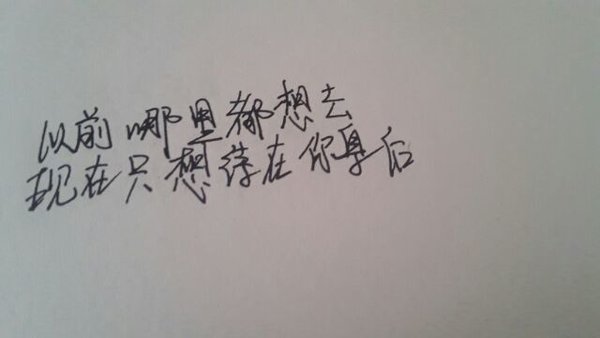 以前哪里都想去
现在只想待在你身后